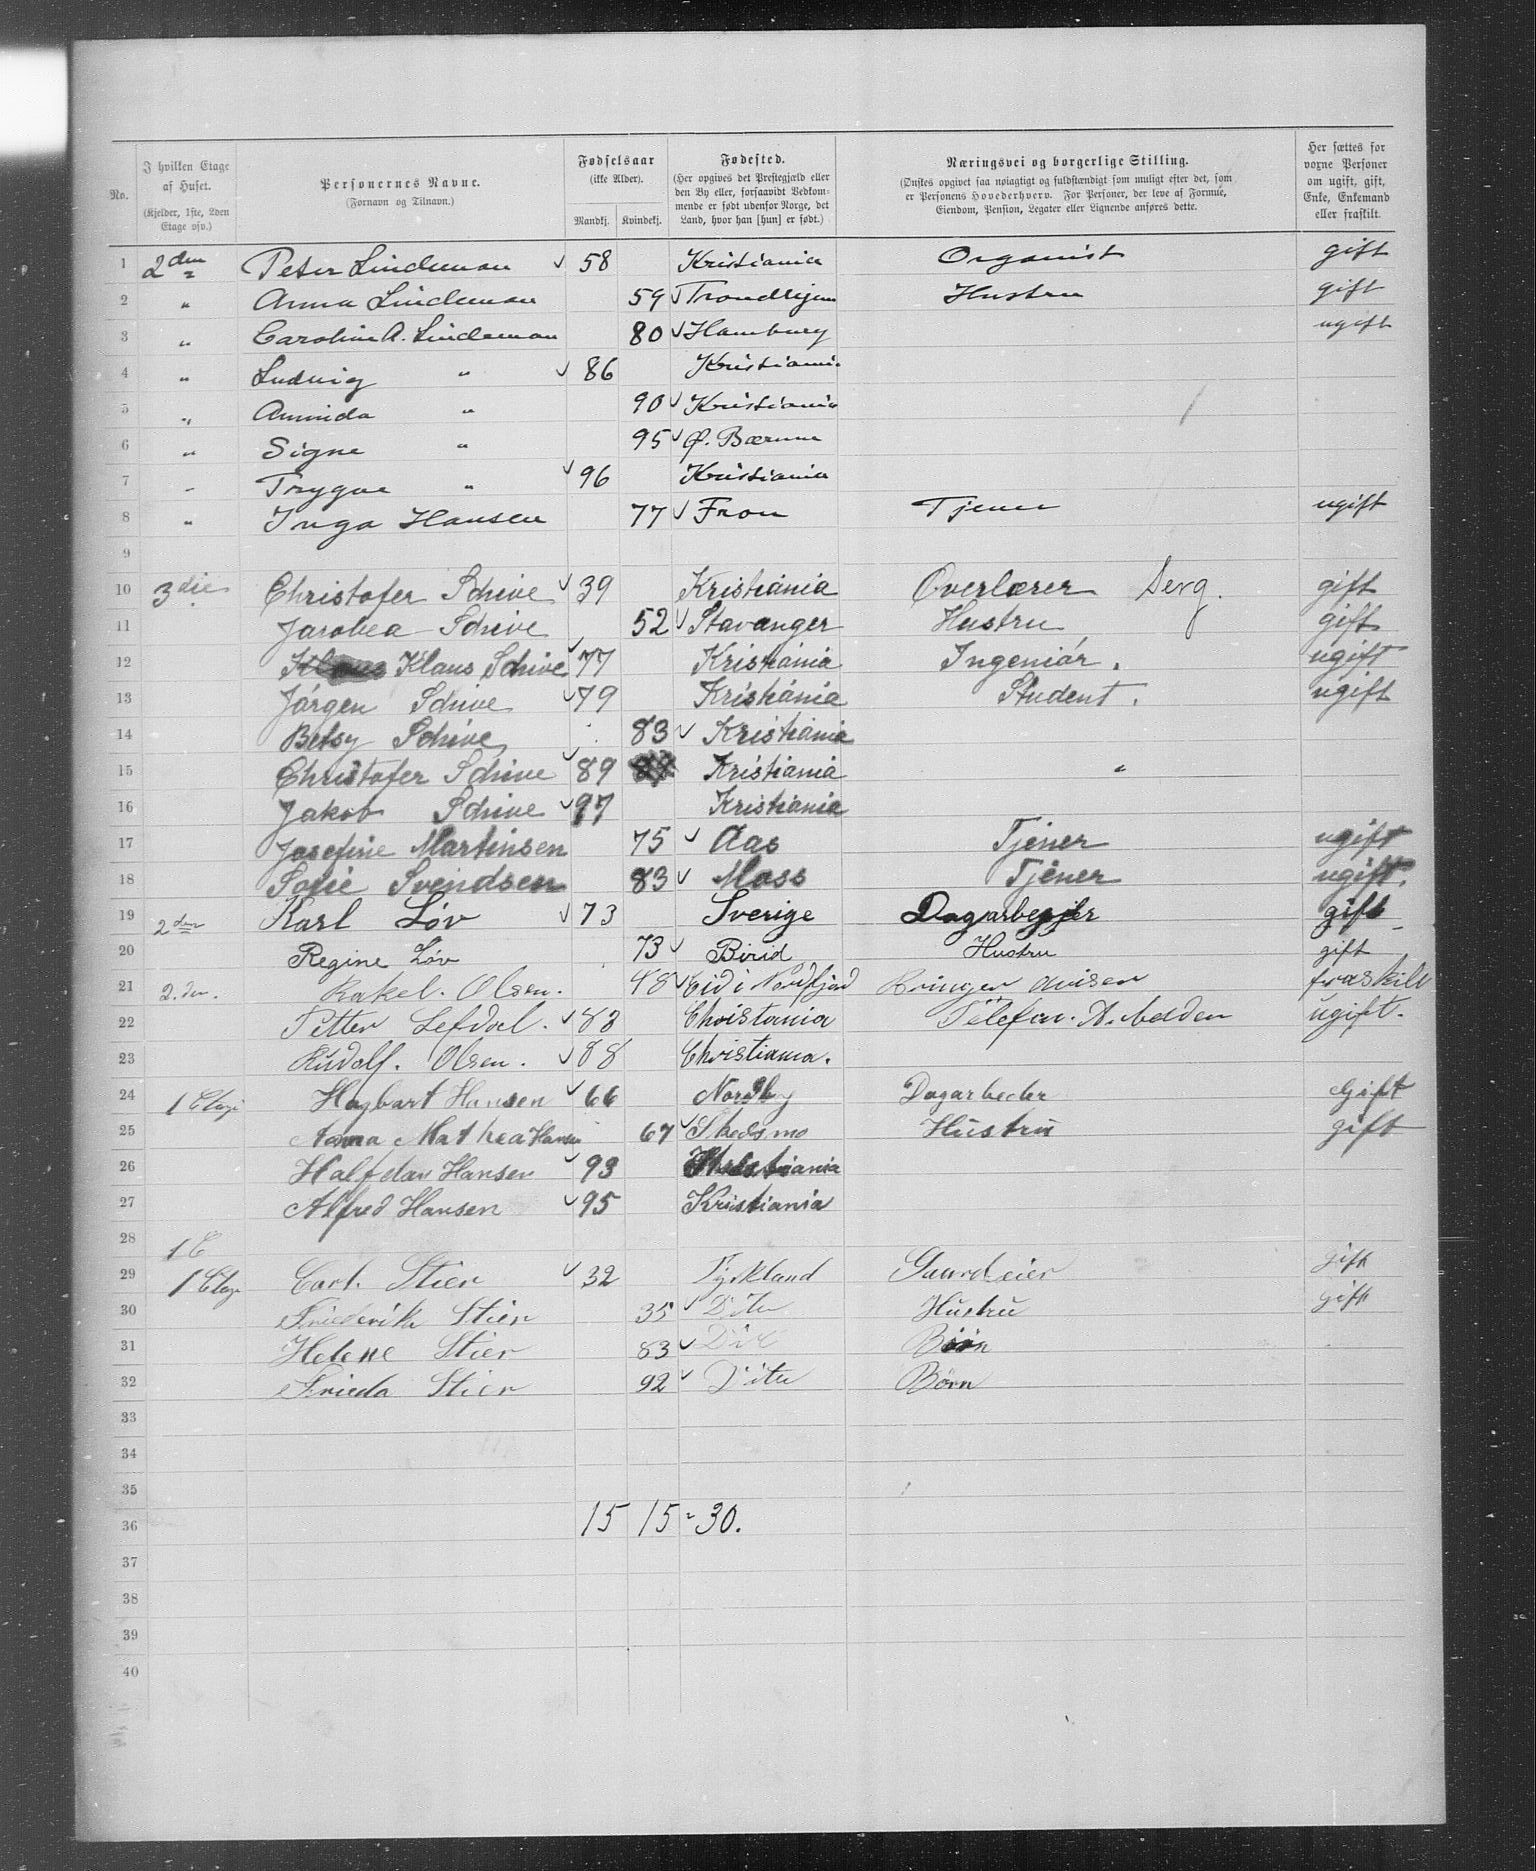 No. | I hvilken Etage af Huset. (Kjelder, 1ste, 2den Etage osv.) | Personernes Navne. (Fornavn og Tilnavn.) | Fødselsaar (ikke Alder). Mandkj. | Kvindekj. | Fødested. (Her opgives det Prestegjæld eller den By eller, forsaavidt Vedkommende er født udenfor Norge, det Land, hvor han [hun] er født.) | Næringsvei og borgerlige Stilling. (Ønskes opgivet saa nøiagtigt og fuldstændigt som muligt efter det, som er Personens Hovederhverv. For Personer, der leve af Formue, Eiendom, Pension, Legater eller Lignende anføres dette.) | Her sættes for voxne Personer om ugift, gift, Enke, Enkemand eller fraskilt.
1 2den Peter Lindeman 58 Kristiania Organist gift
2 " Anna Lindeman 59 Trondhjem Hustru gift
3 " Caroline A. Lindeman 80 Hamburg ugift
4 " Ludvig " 86 Kristiania
5 " Aminda " 90 Kristiania
6 " Signe " 95 Ø. Bærum
7 " Trygve " 96 Kristiania
8 " Inga Hansen 77 Fron Tjener ugift
9
10 3die Christofer Schive 39 Kristiania Overlærer gift
11 Jacobea Schive 52 Stavanger Hustru gift
12 Klaus Schive 77 Kristiania Ingeniør. ugift
13 Jørgen Schive 79 Kristiania Student. ugift
14 Betsy Schive 83 Kristiania
15 Christofer Schive 89 Kristiania "
16 Jakob Schive 97 Kristiania
17 Josefine Martinsen 75 Aas Tjener ugift
18 Sofie Svendsen 83 Moss Tjener ugift.
19 2den Karl Løv 73 Sverige Dagarbejder gift
20 Regine Løv 73 Birid Hustru gift
21 2.den Rakel. Olsen. 48 Eid i Nordfjord Bringer Aviser fraskilt
22 Petter Lefdal. 83 Christania Telefon. Arbeider ugift.
23 Rudolf. Olsen. 88 Christiania.
24 1 Etage Hagbart Hansen 66 Nordby Dagarbeder Gift
25 Anna Mathea Hansen 67 Skedsmo Hustru gift
26 Halfdan Hansen 93 Kristiania
27 Alfred Hansen 95 Kristiania
28 1 E
29 1 Etage Carl. Stier 32 Tyskland Gaardeier gift
30 Friederike Stier 35 Dito Hustru gift
31 Helene Stier 83 Dito Børn
32 Frieda Stier 92 Dito Børn
33
34
35
36 15 15 = 30.
37
38
39
40